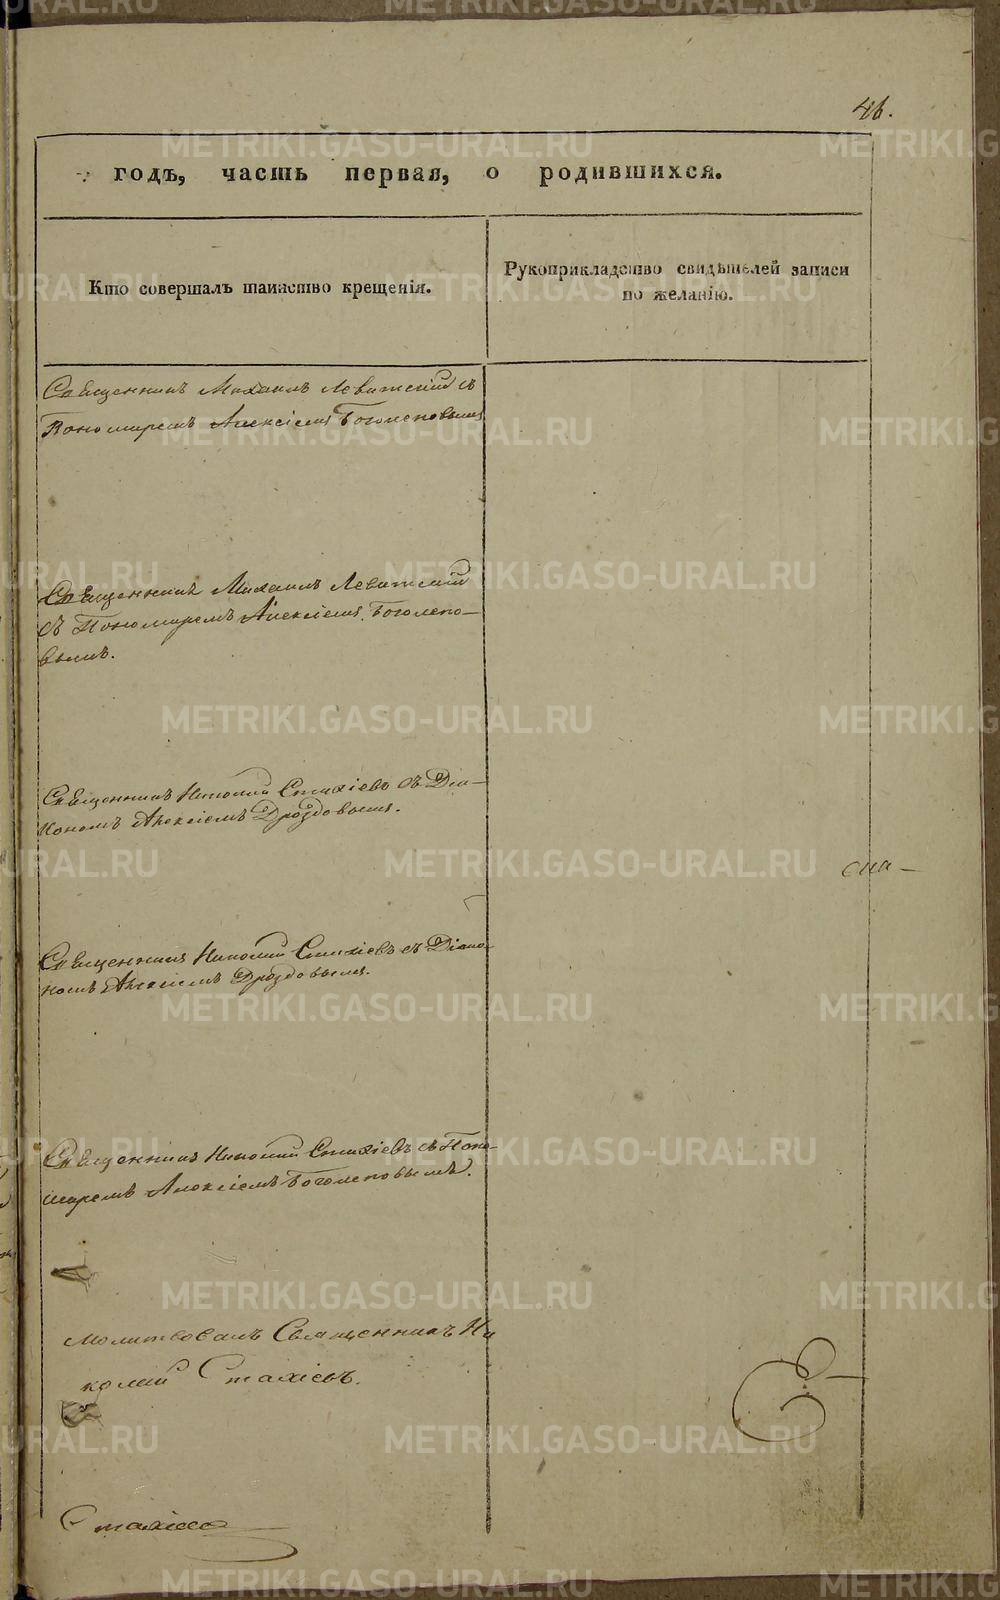 46.
годъ, часть первая, о родившихся.
Кто совершалъ таинство крещенія.
Рукоприкладство свидѣтелей записи
по желанію.
Священникъ Михаилъ Левитскій съ
Пономаремъ Алексіемъ Боголеповымъ
Священникъ Михаилъ Левитскій
съ Пономаремъ Алексіемъ Боголепо-
вымъ.
Священникъ Николай Стахіевъ съ Діа-
кономъ Алексіемъ Дроздовымъ.
Священникъ Николай Стахіевъ съ Діако-
номъ Алексіемъ Дроздовымъ.
Священникъ Николай Стахіевъ съ Поно-
маремъ Алексіемъ Боголеповымъ.
Молитвовалъ Священникъ Ни
колай Стахіевъ.
Стахіевъ
METRIKI.GASO-URAL.RU